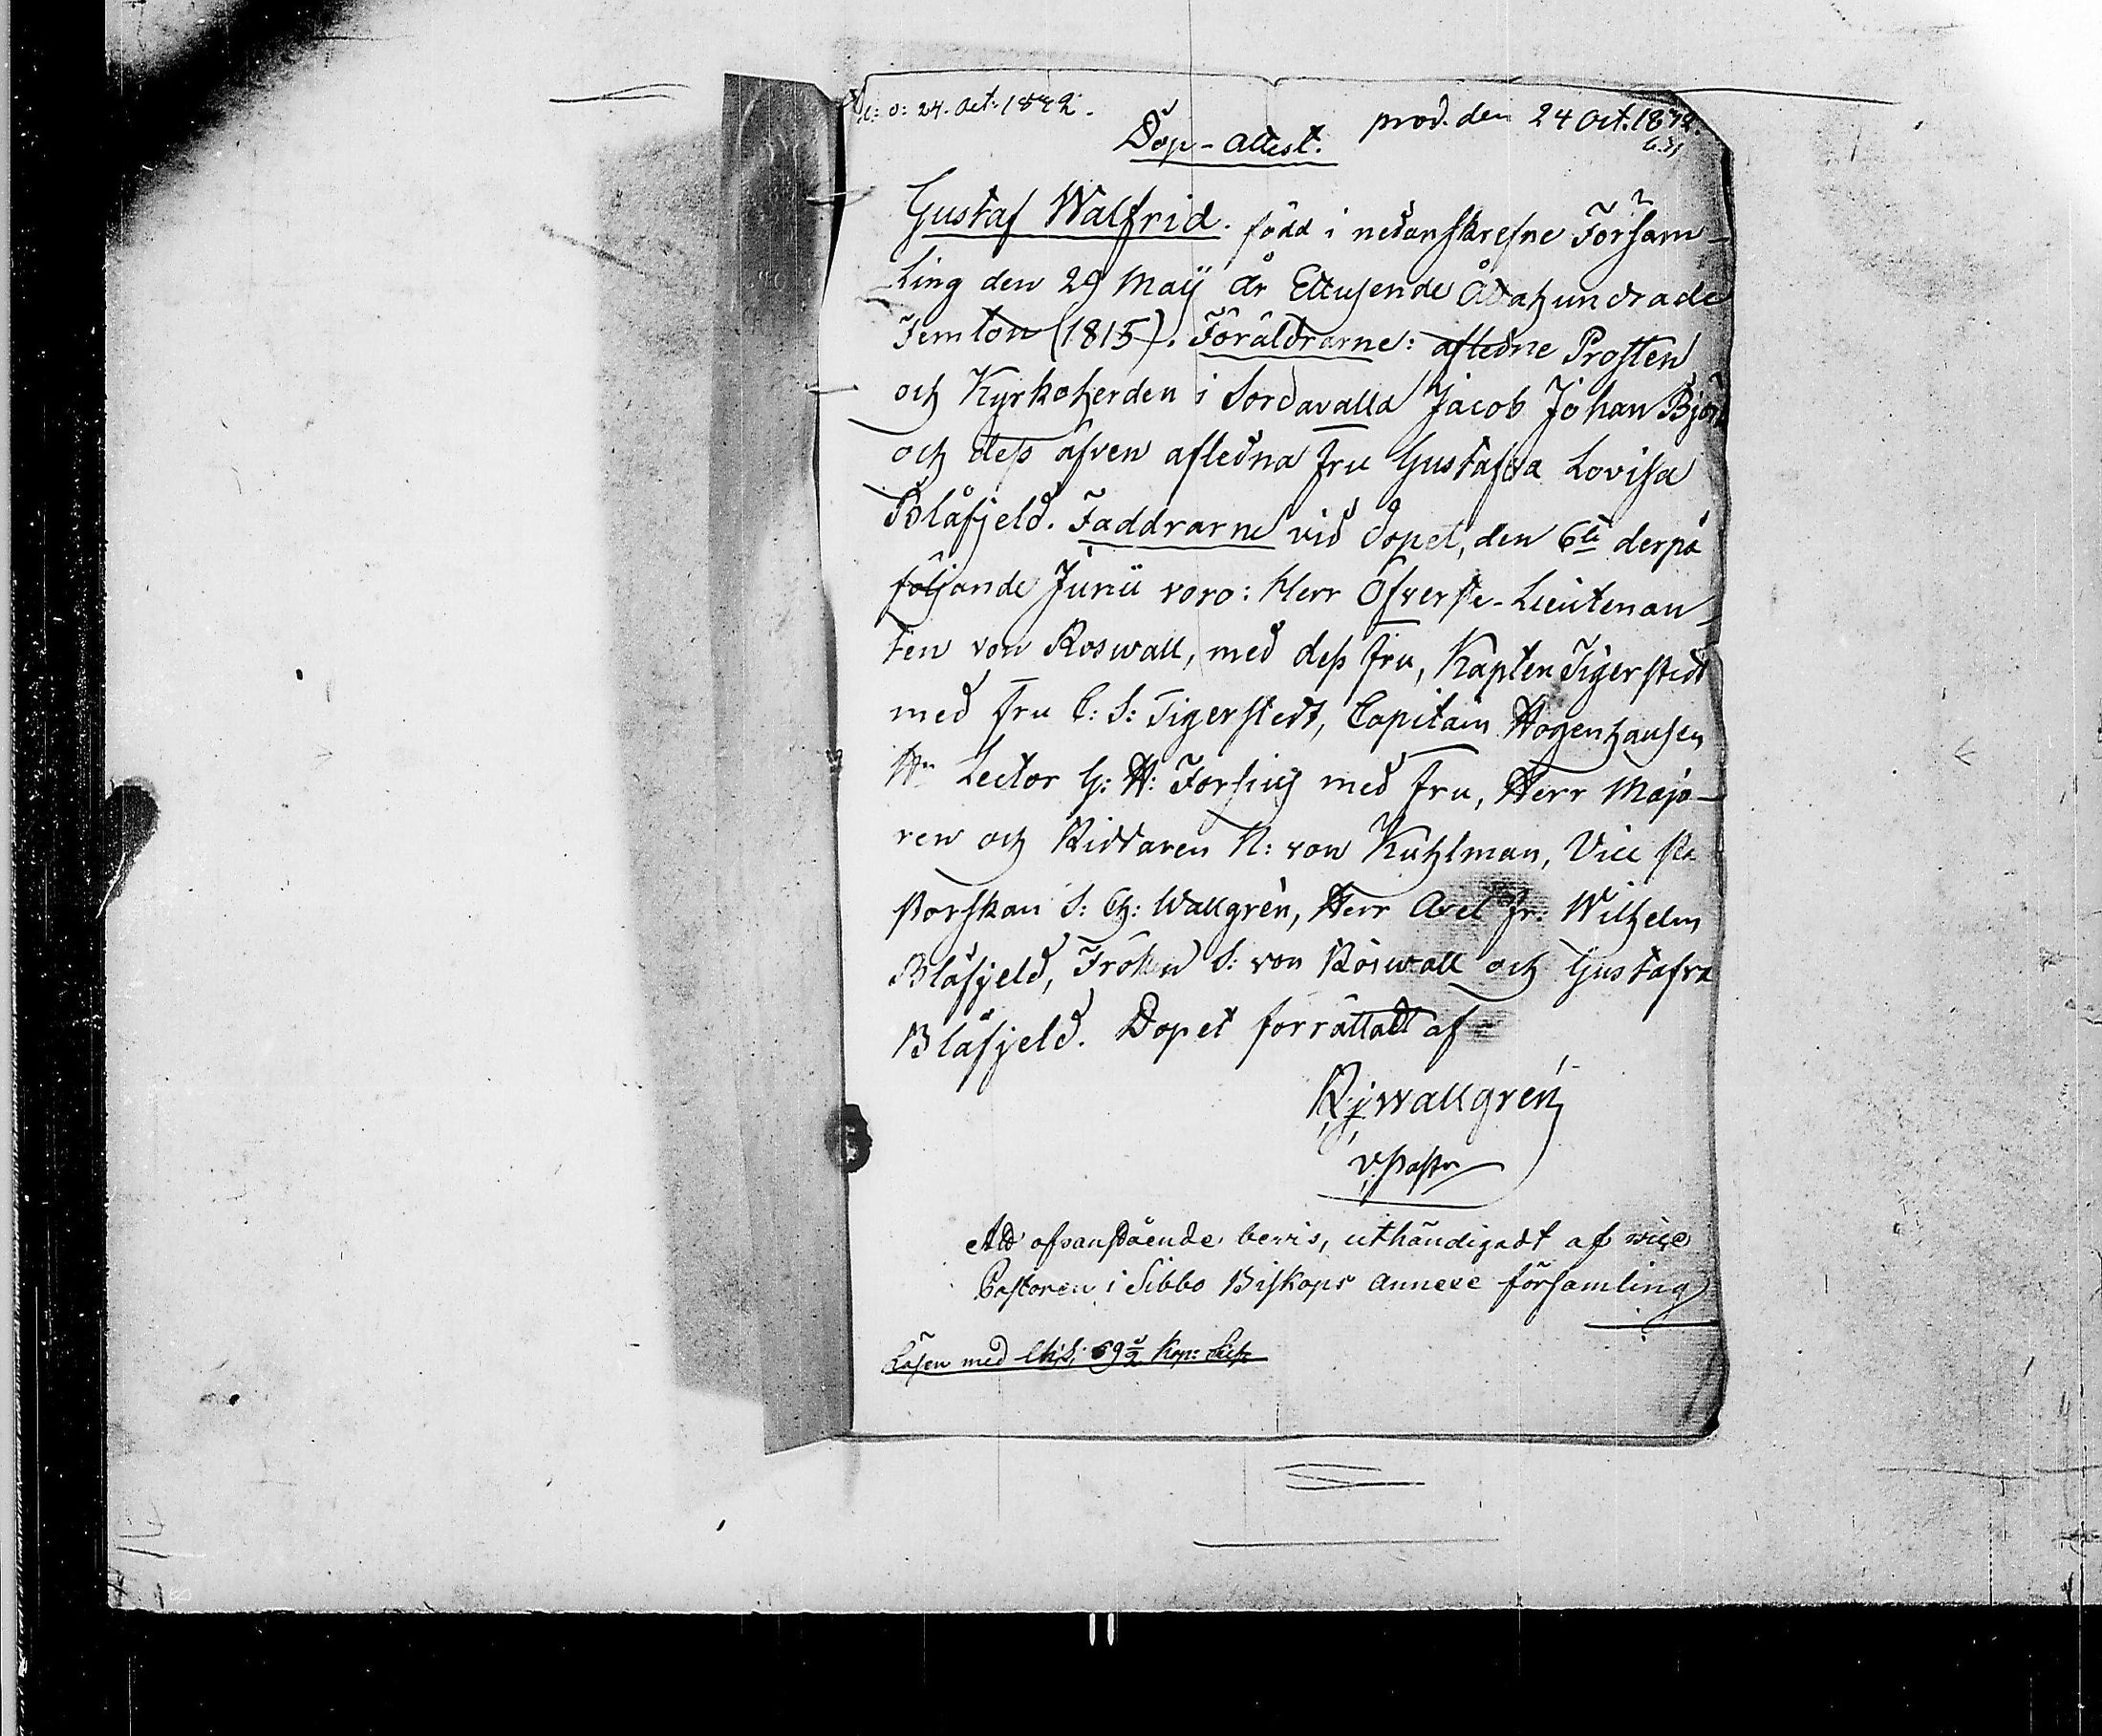 24. Oct. 1842.
prod. den 24 Oct. 1842.
Dop-Attest.
Gustaf Walfrid. född i nedanskrefne Försam-
ling den 29 Maij år Ettusende Åttahundrade
Femton (1815). Föräldrarne: aflednе Prosten
och Kyrkoherden i Sordavalla Jacob Johan Björk
och dess äfven aflednа Fru Gustafva Lovisa
Blåfjeld. Faddrarne vid Dopet, den 6te derpå
följande Junii voro: Herr Öfverste-Lieutenan-
ten von Roswall, med dess Fru, Kapten Tigerstedt
med Fru C: S: Tigerstedt, Capitain Hogenhausen
Hr Lector G: H: Forsius med Fru, Herr Majo-
ren och Riddaren N: von Kuhlman, Vice Pa
storskan S: Ch: Wallgrén, Herr Axel Fr: Wilhelm
Blåfjeld, Fröken S: von Roswall och Gustafva
Blåfjeld. Dopet förrättadt af
Wallgrén
v. Pastor
ofvanstående bevis, uthändigadt af vice
Pastoren i Sibbo Biskops annexe församling
Lösen med 69 Kop: Silfr